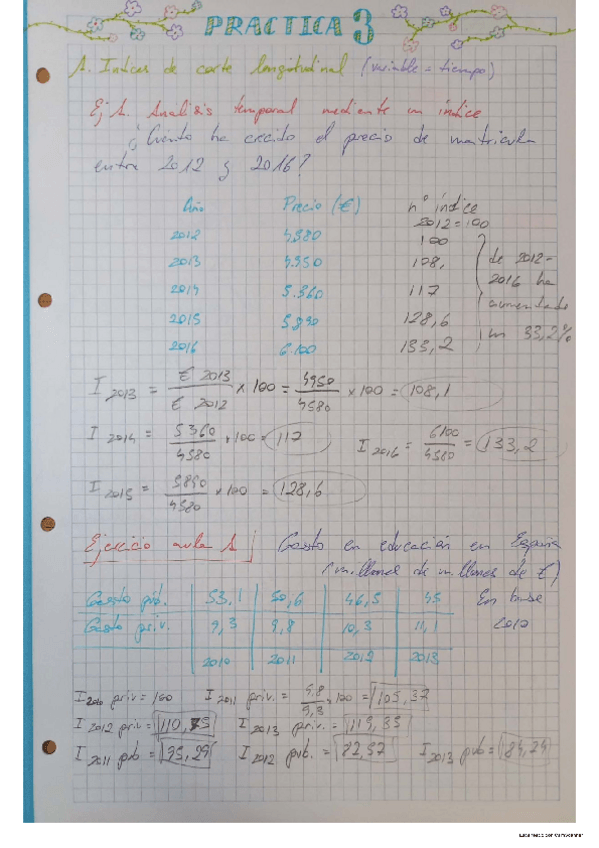 PRACTICA 3
1. Indices de corte longitudinal (variable = tiempo)
Ej 1. Analisis temporal mediante un índice
¿Cuánto ha crecido el precio de matricula
entre 2012 y 2016?
Año Precio (€) nº índice
2012=100
2012 4580 100
2013 4950 128,
2014 5.360 117
2015 5890 128,6
2016 6.100 133,2
de 2012-
2016 ha
aumentado
un 33,2%
I 2013 = € 2013 / € 2012 × 100 = 4950 / 4580 × 100 = 108,1
I 2014 = 5360 / 4580 × 100 = 117
I 2016 = 6100 / 4580 = 133,2
I 2015 = 5890 / 4580 × 100 = 128,6
Ejercicio aula 1 Gasto en educación en España
(millones de millones de €)
Gasto púb. 53,1 50,6 46,5 45 En base
Gasto priv. 9,3 9,8 10,3 11,1 2010
2010 2011 2012 2013
I 2010 priv = 100 I 2011 priv. = 9,8 / 9,3 × 100 = 105,37
I 2012 priv = 110,75 I 2013 priv. = 119,35
I 2011 pub = 95,29 I 2012 pub. = 87,57 I 2013 pub = 84,74